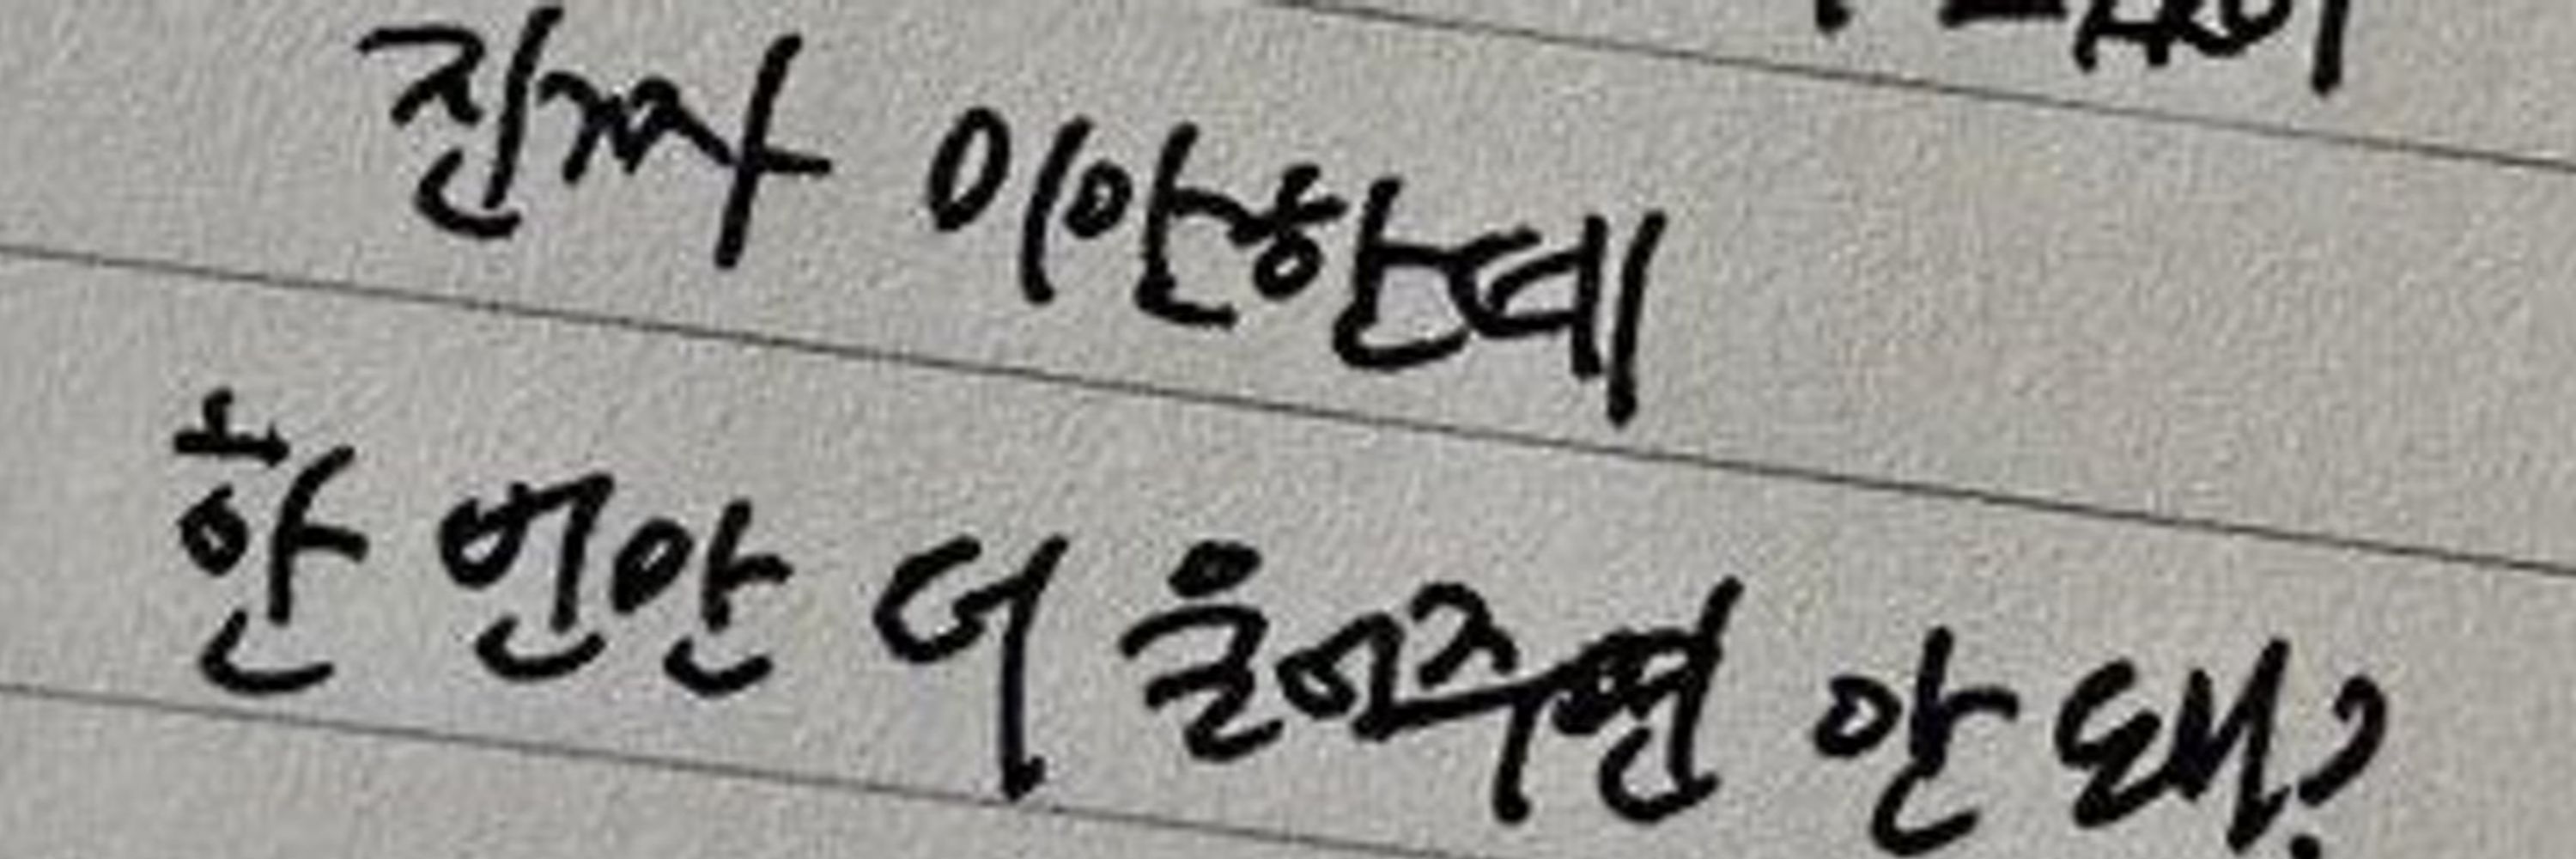 진짜 미안한데
한 번만 더 들어주면 안 돼?